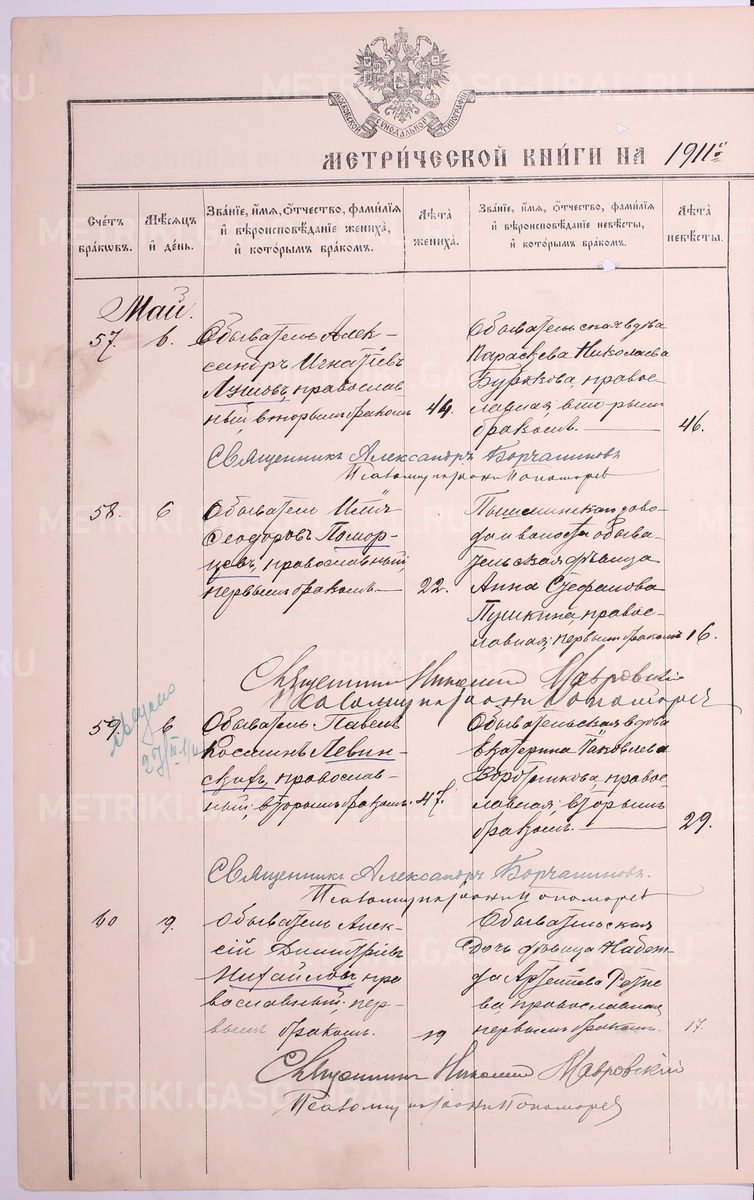 МОСКОВСКОЙ СѴНОДАЛЬНОЙ ТИПОГРАФІИ
МЕТРИ́ЧЕСКОЙ КНИ́ГИ НА 1911 г
Сче́тъ бра́кѡвъ.
Мѣ́сяцъ и҆ де́нь.
Зва́нїе, и҆́мя, ѻ҆́тчество, фами́лїя и҆ вѣроисповѣ́данїе жениха̀, и҆ кото́рымъ бра́комъ.
Лѣ́та жениха̀.
Зва́нїе, и҆́мя, ѻ҆́тчество, фами́лїя и҆ вѣроисповѣ́данїе невѣ́сты, и҆ кото́рымъ бра́комъ.
Лѣ́та невѣ́сты.
Май.
57. 6.
Обыватель Алек-
сандръ Игнатіевъ
Лушовъ, православ
ный вторымъ бракомъ 44.
Обывательская вдова
Параскева Николаева
Буркова, право-
славная, вторымъ
бракомъ. 46.
Священникъ Александръ Борчаниновъ
Псаломщикъ Іоаннъ Пономоревъ
58. 6
Обыватель
Ѳеодоровъ Помор-
цевъ, православный,
первымъ бракомъ 22.
Пышминскаго заво-
да и волости обыва-
тельская дѣвица
Анна Стефанова
Пушкина, право-
славная, первымъ бракомъ 16.
Священникъ Николай Мавровскій
Псаломщикъ Іоаннъ Пономоревъ
59. 6
Обыватель Павелъ
Косминъ Левин-
скихъ, православ-
ный, вторымъ бракомъ. 47.
Обывательская вдова
Екатерина Яковлева
Воротникова, право-
славная, вторымъ
бракомъ. 29.
Священникъ Александръ Борчаниновъ.
Псаломщикъ Іоаннъ Пономоревъ
60 9.
Обыватель Алек-
сій Димитріевъ
Михайловъ, пра
вославный, пер-
вымъ бракомъ. 19
Обывательская
дочь дѣвица Надеж-
да Артемьева
православная
первымъ бракомъ. 17.
Священникъ Николай Мавровскій
Псаломщикъ Іоаннъ Пономоревъ
METRIKI.GASO-URAL.RU